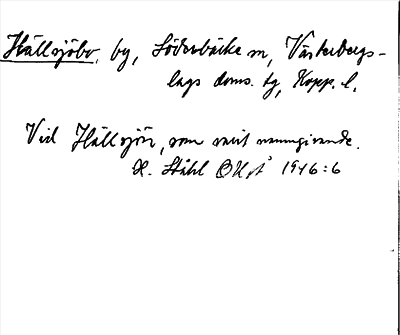 Hällsjöbo, by, Söderbärke sn, Västerbergs-
lags doms. tg, Kopp. l.
Vid Hällsjön, som varit namngivande.
H. Ståhl 1946:6